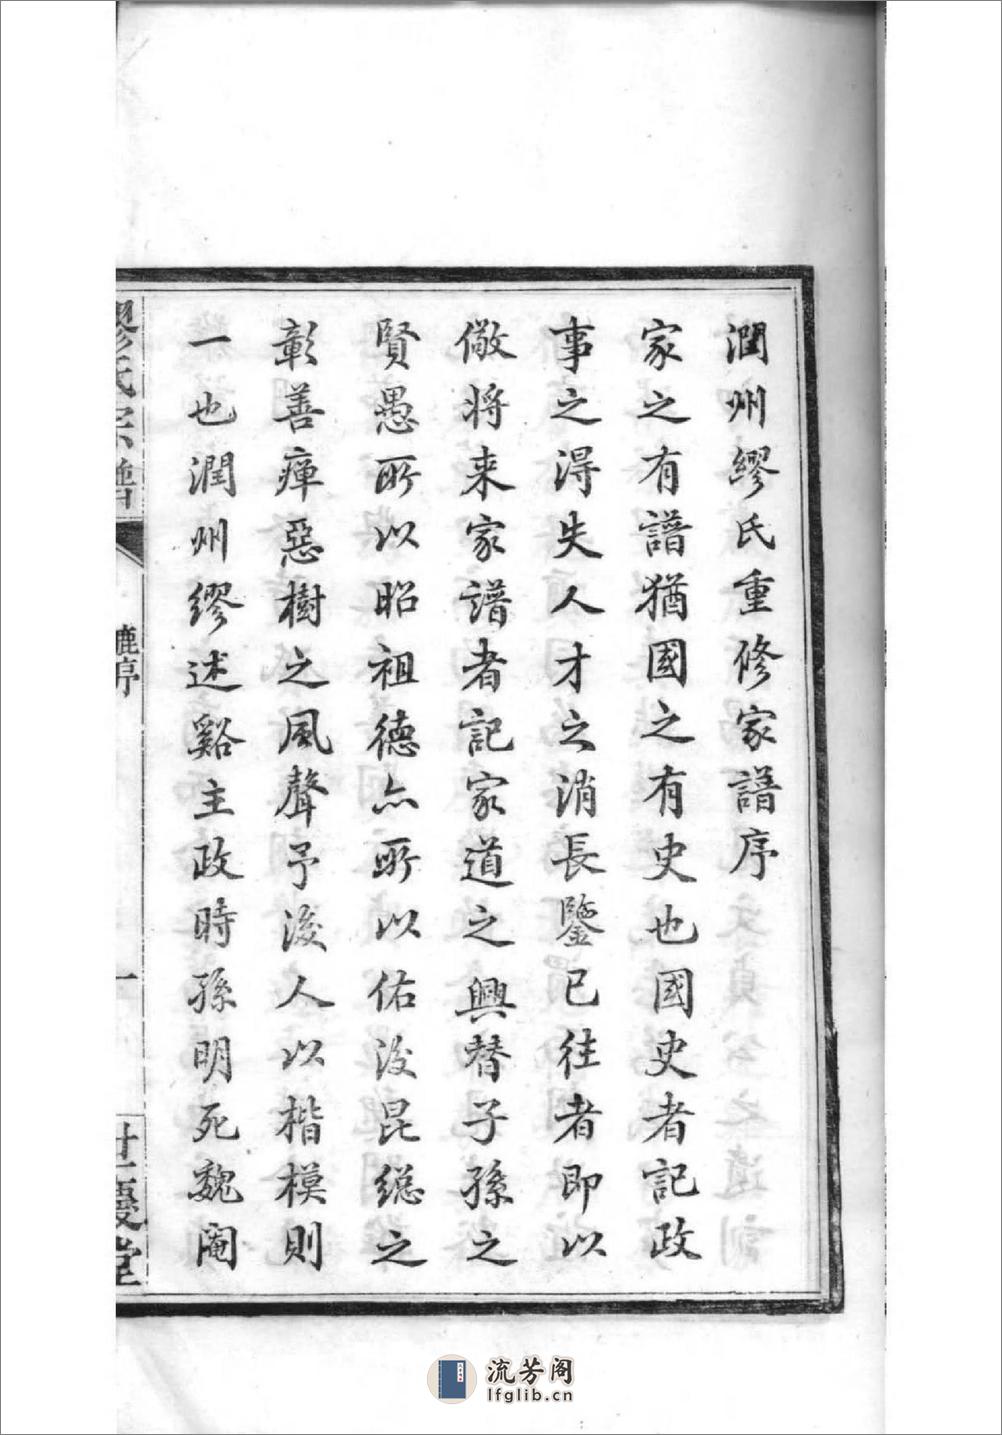 潤州繆氏重修家譜序
家之有譜猶國之有史也國史者記政
事之淂失人才之消長鑒已往者即以
儆将来家譜者記家道之興替子孫之
賢愚所以昭祖德亦所以佑後昆緫之
彰善癉惡樹之風聲予後人以楷模則
一也潤州繆述谿主政時孫明死魏閹
繆氏宗譜
一
世慶堂
流芳阁
lfglib.cn